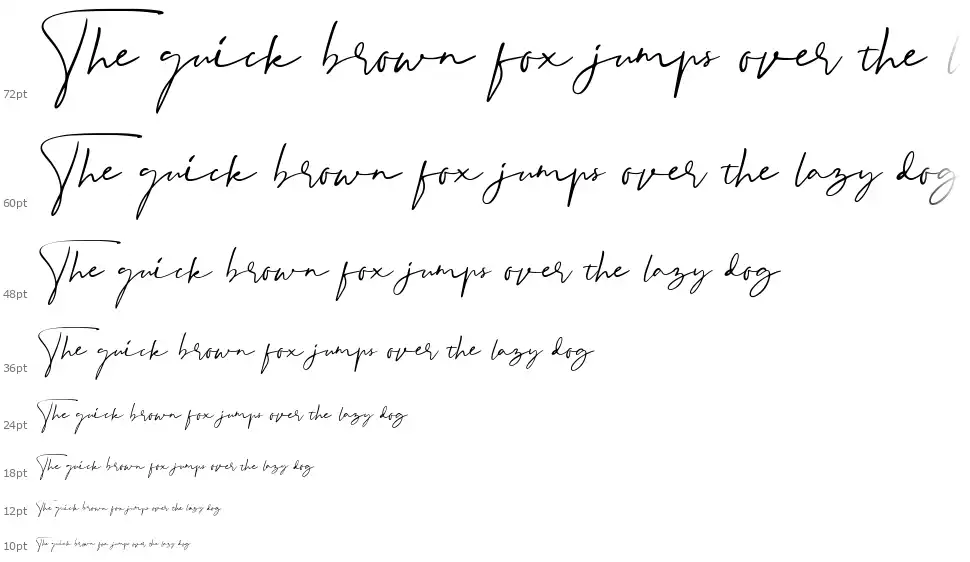 72pt The quick brown fox jumps over the l
60pt The quick brown fox jumps over the lazy dog
48pt The quick brown fox jumps over the lazy dog
36pt The quick brown fox jumps over the lazy dog
24pt The quick brown fox jumps over the lazy dog
18pt The quick brown fox jumps over the lazy dog
12pt The quick brown fox jumps over the lazy dog
10pt The quick brown fox jumps over the lazy dog